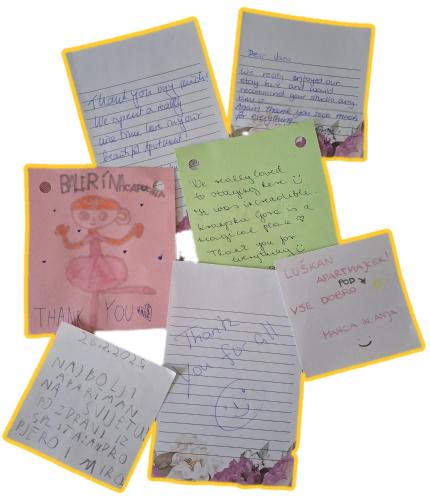 Thank you very much!
We spent a really
nice time here in your
beautiful apartment!
Dear Jana
We really enjoyed our
stay here and would
recommend your studio any
time!
Again thank you soo much
for everything
We really loved
to staying here
It was incredible.
Kranjska Gora is a
magical place
Thank you for
everything
BALERINA CAPUCINA
THANK YOU
LUŠKAN
APARTMAJČEK!
POD
VSE DOBRO
MANCA IN ANJA
Thank
you for all
NAJBOLJI
APARTMAN
NA SVIJETU
POZDRAVI IZ
SPLITA: ANDRO
PJERO I MIRO